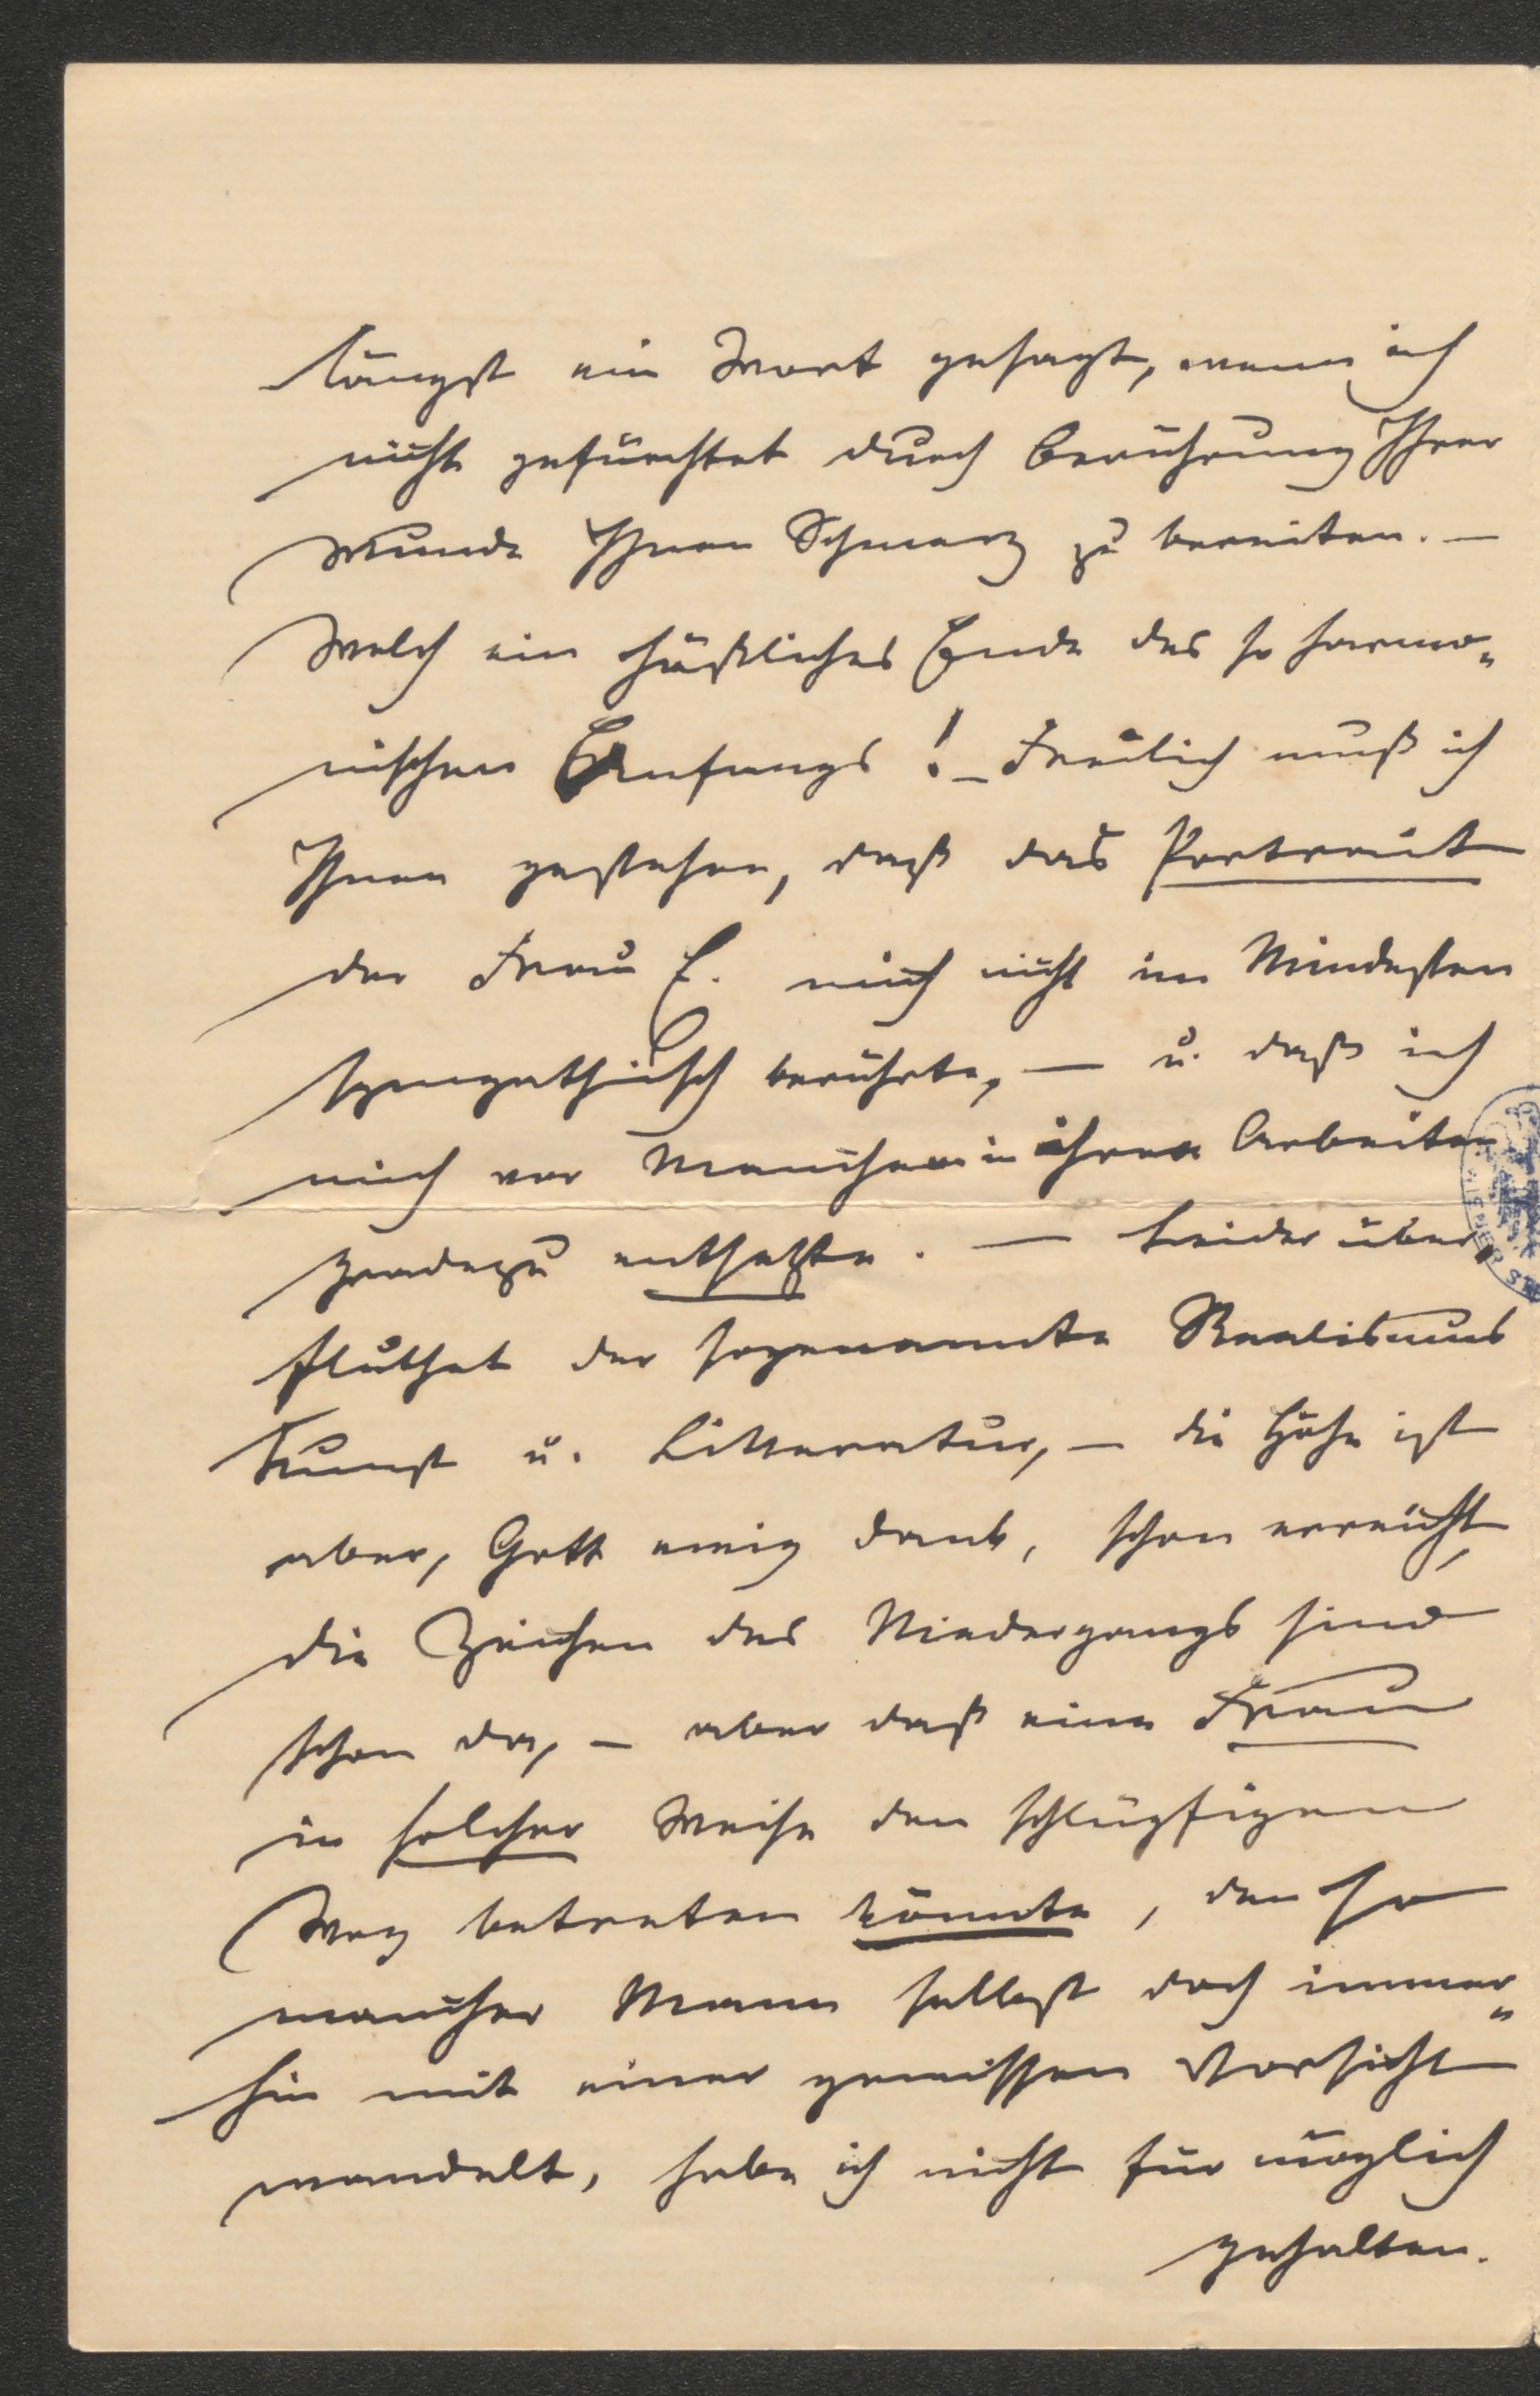 längst ein Wort gesagt, wenn ich
nicht gefürchtet durch Berührung Ihrer
Wunde Ihnen Schmerz zu bereiten. —
Welch ein häßliches Ende des so harmo„
nischen Anfangs! — Freilich muß ich
Ihnen gestehen, daß das Portrait
der Frau E. mich nicht im Mindesten
sympathisch berührte, — u. daß ich
mich vor Manchem in ihren Arbeiten
geradezu entsetzte. — Leider über„
fluthet der sogenannte Realismus
Kunst u. Litteratur, — die Höhe ist
aber, Gott ewig Dank, schon erreicht,
die Zeichen des Niedergangs sind
schon da, — aber daß eine Frau
in solcher Weise den schlüpfrigen
Weg betreten könnte, den so
mancher Mann selbst doch immer„
hin mit einer gewissen Vorsicht
wandelt, habe ich nicht für möglich
gehalten.